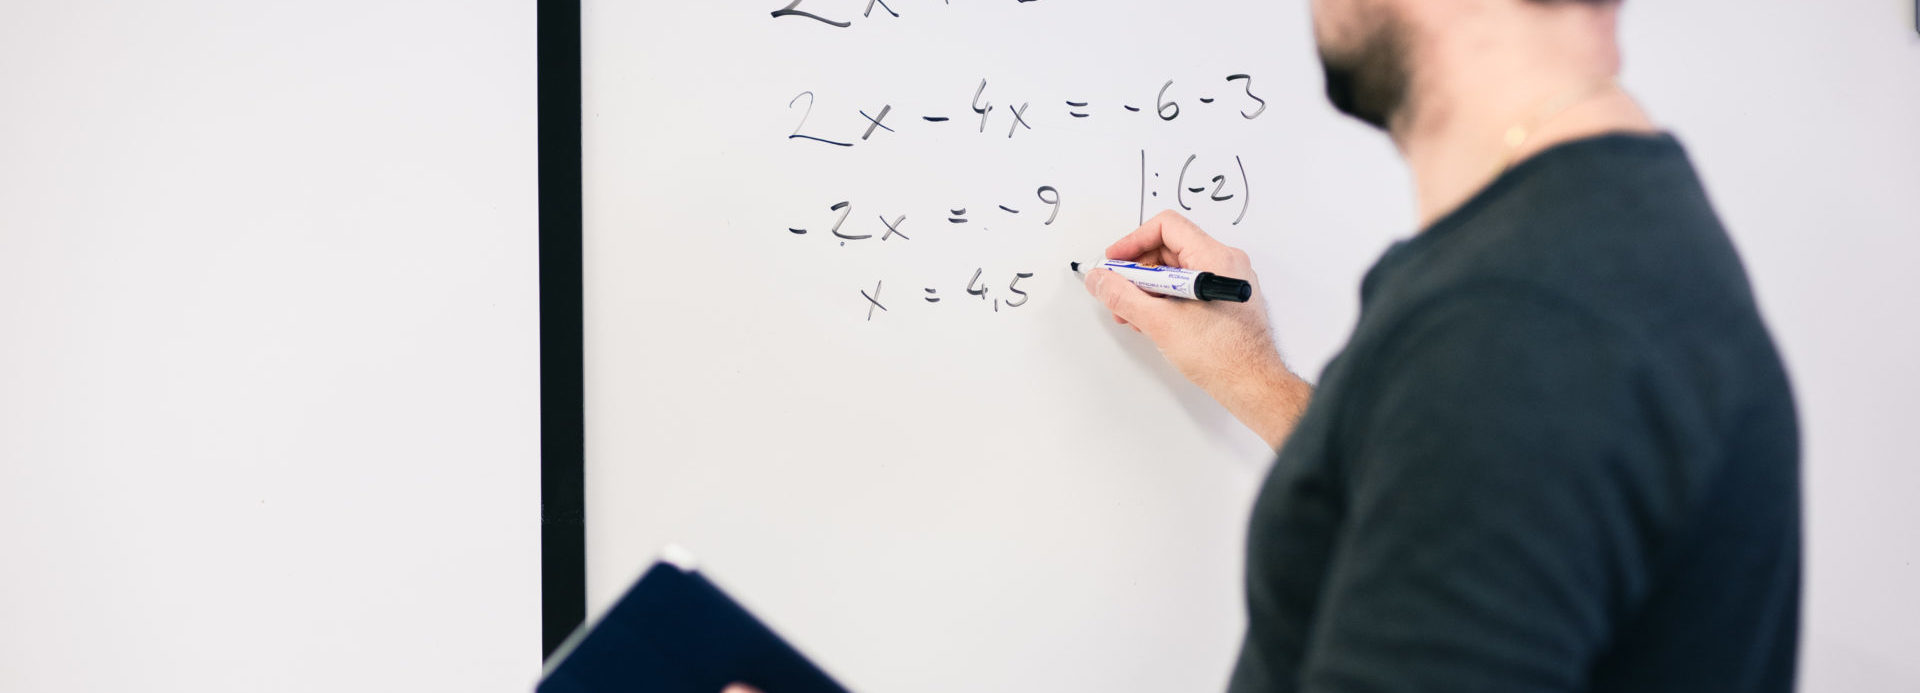 2x - 4x = -6 - 3
- 2x = - 9 |: (-2)
x = 4,5